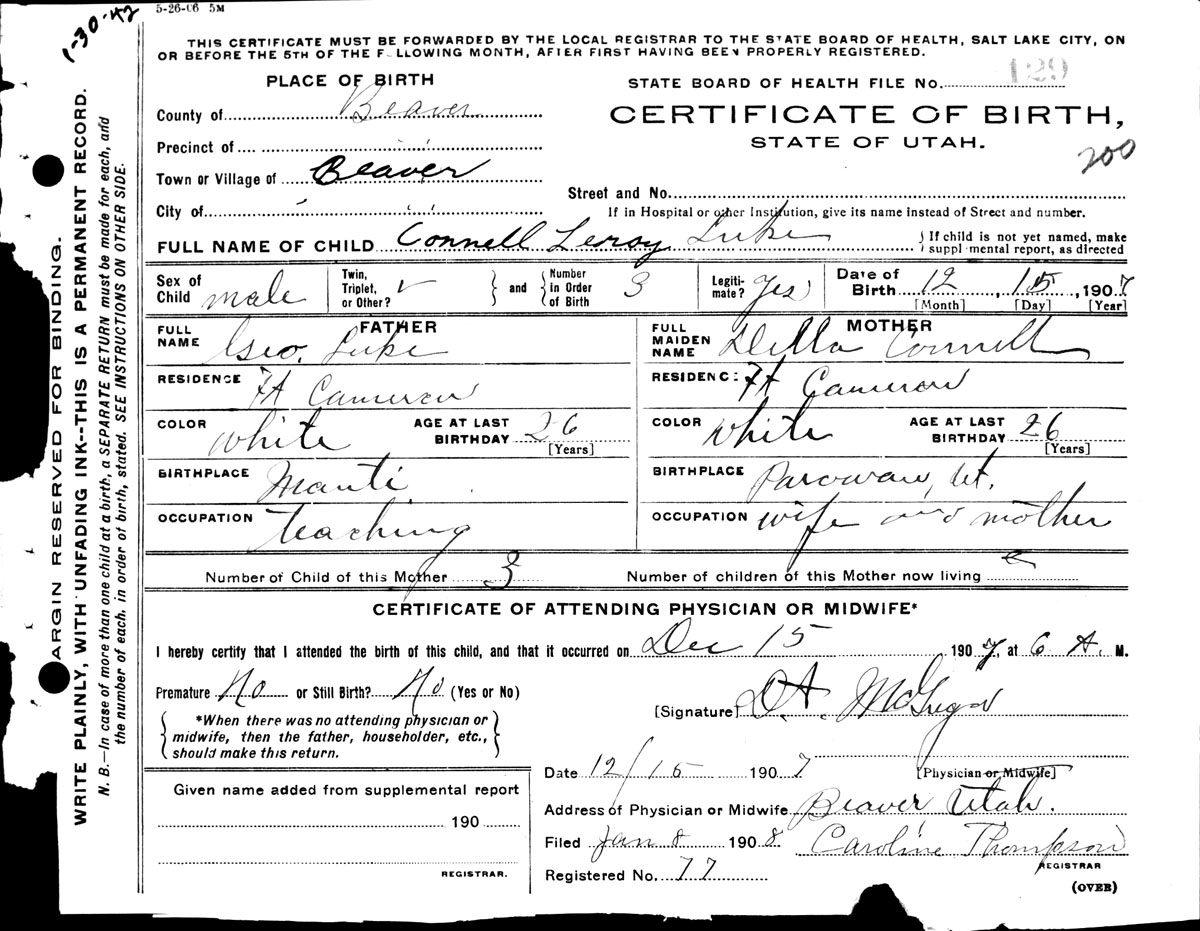 1-30-42
5-26-06 5M
THIS CERTIFICATE MUST BE FORWARDED BY THE LOCAL REGISTRAR TO THE STATE BOARD OF HEALTH, SALT LAKE CITY, ON
OR BEFORE THE 5TH OF THE F LLOWING MONTH, AFTER FIRST HAVING BEEN PROPERLY REGISTERED.
PLACE OF BIRTH
STATE BOARD OF HEALTH FILE No. 129
County of Beaver
CERTIFICATE OF BIRTH,
STATE OF UTAH.
200
Precinct of
Town or Village of Beaver
Street and No.
City of
If in Hospital or other Institution, give its name instead of Street and number.
FULL NAME OF CHILD Connell Leroy Luke
If child is not yet named, make
suppl mental report, as directed
Sex of Child male
Twin, Triplet, or Other?
and
Number in Order of Birth 3
Legiti-mate? Yes
Date of Birth 12 15, 1907
[Month] [Day] [Year]
FATHER
FULL NAME Geo. Luke
RESIDENCE Ft Cameron
COLOR White
AGE AT LAST BIRTHDAY 26
[Years]
BIRTHPLACE Manti
OCCUPATION teaching
MOTHER
FULL MAIDEN NAME Della Connell
RESIDENC: Ft Cameron
COLOR White
AGE AT LAST BIRTHDAY 26
[Years]
BIRTHPLACE Parowan, Ut.
OCCUPATION wife and mother
Number of Child of this Mother 3
Number of children of this Mother now living
CERTIFICATE OF ATTENDING PHYSICIAN OR MIDWIFE*
I hereby certify that I attended the birth of this child, and that it occurred on Dec 15 1907, at 6 A. M.
Premature No or Still Birth? No (Yes or No)
[Signature]
*When there was no attending physician or
midwife, then the father, householder, etc.,
should make this return.
Date 12/15 1907
[Physician or Midwife]
Given name added from supplemental report
190
REGISTRAR.
Address of Physician or Midwife Beaver Utah.
Filed Jan 8 1908. Caroline Thompson
REGISTRAR
Registered No. 77
(OVER)
ARGIN RESERVED FOR BINDING.
WRITE PLAINLY, WITH UNFADING INK--THIS IS A PERMANENT RECORD.
N. B.—In case of more than one child at a birth, a SEPARATE RETURN must be made for each, and
the number of each, in order of birth, stated. SEE INSTRUCTIONS ON OTHER SIDE.